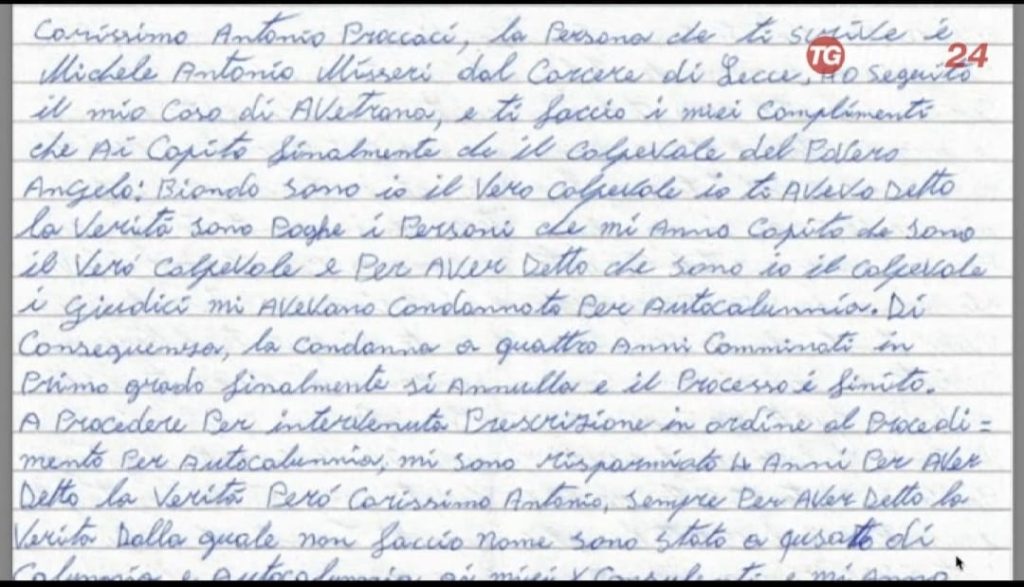 Carissimo Antonio Procaci, la Persona che ti scrive è
TG 24
Michele Antonio Misseri dal Carcere di Lecce, HO seguito
il mio Caso di AVetrana, e ti faccio i miei Complimenti
che Ai Capito finalmente che il ColpeVale del PoVero
Angelo: Biondo sono io il Vero ColpeVole io ti AVeVo Detto
la Verità sono Poghe i Personi che mi Anno Capito che sono
il Veró ColpeVole e Per AVer Detto che sono io il ColpeVole
i Giudici mi AVeVano Condannoto Per Autocalunnia. Di
Conseguensa, la Condanna a quattro Anni Comminati in
Primo grado finalmente si Annulla e il Processo é finito.
A Procedere Per intervenuta Prescrizione in ordine al Procedi=
mento Per Autocalunnia, mi sono risparmiato 4 Anni Per AVer
Detto la Verità Peró Carissimo Antonio, sempre Per AVer Detto la
Verità Dalla quale non faccio Nome sono stato a qusato di
Calunnia e Autocalunnia ai miei Consulenti e mi Anno